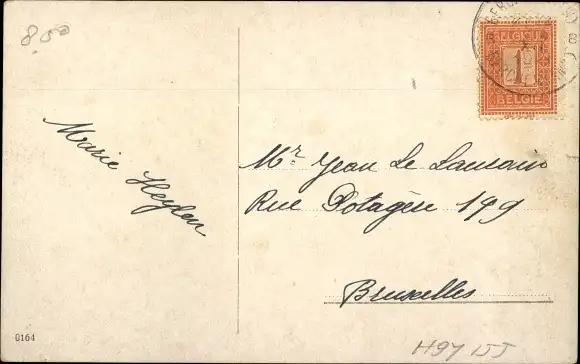 8.50
BELGIQUE
1
BELGIË
Marie Heylen
Mr. Jean Le Lansoin
Rue Potagère 199
Bruxelles
0164
H97 IJJ